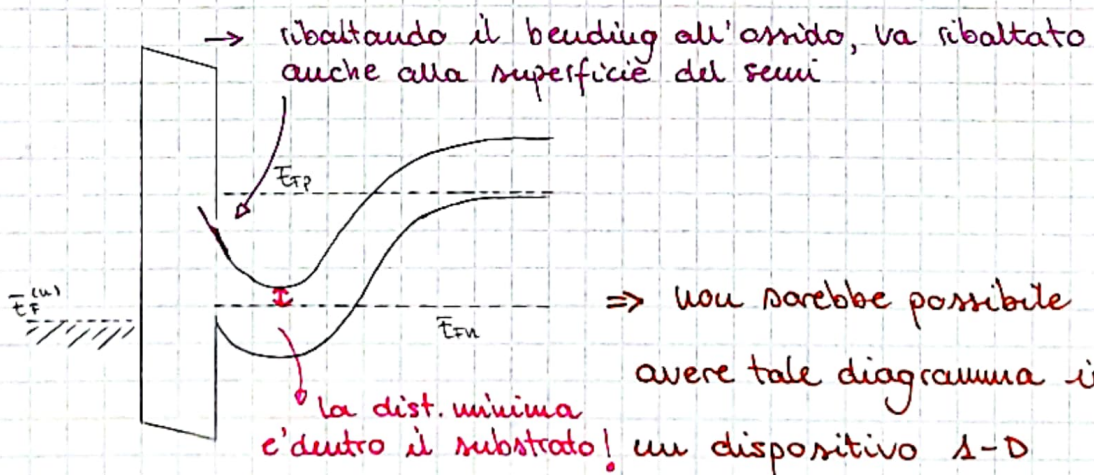 → ribaltando il bending all'ossido, va ribaltato
anche alla superficie del semi
E_Fp
E_F^(n)
E_Fn
⇒ non sarebbe possibile
avere tale diagramma i
la dist. minima
e' dentro il substrato! un dispositivo 1-D